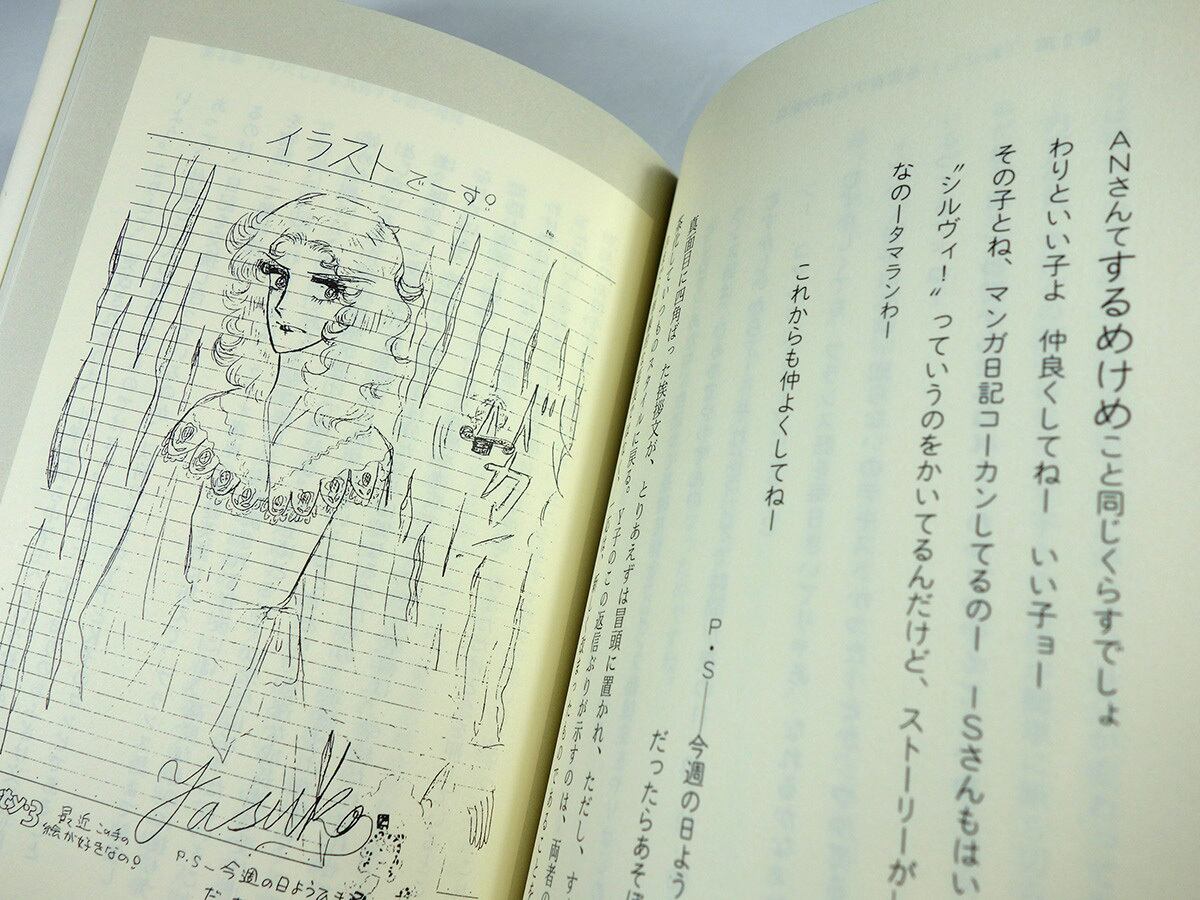 ANさんてするめけめこと同じくらすでしょ
わりといい子よ　仲良くしてねー　いい子ョー
その子とね、マンガ日記コーカンしてるのー　ーSさんもはい
〝シルヴィ！〟っていうのをかいてるんだけど、ストーリーがー
なのータマランわー
これからも仲よくしてねー
P・S──今週の日よう
だったらあそぼ
真面目に四角ばった挨拶文が、とりあえずは冒頭に置かれ、ただし、す
いつものスタイルに戻る。Y子のこの返信ぶりが示すのは、両者の
まったものであることを
イラストでーす!
Yasuko
最近この手の
絵が好きなの!
P.S-今週の日よう
だ